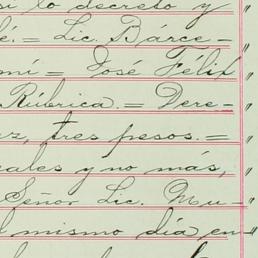 si lo decretó y
é.= Lic. Bárce-
mí= José Félix
Rúbrica.= Dere-
ez, tres pesos.=
eales y no más,
Señor Lic. Mu-
l mismo día en-